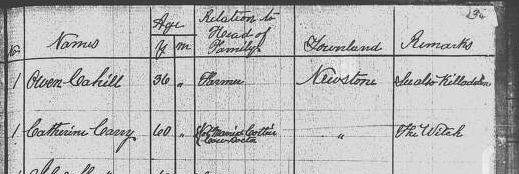 No Names Age Y M Relation to Head of Family Townland Remarks
1 Owen Cahill 36 " Farmer Newstone See also Killadden
1 Catherine Carry 60 " " The Witch